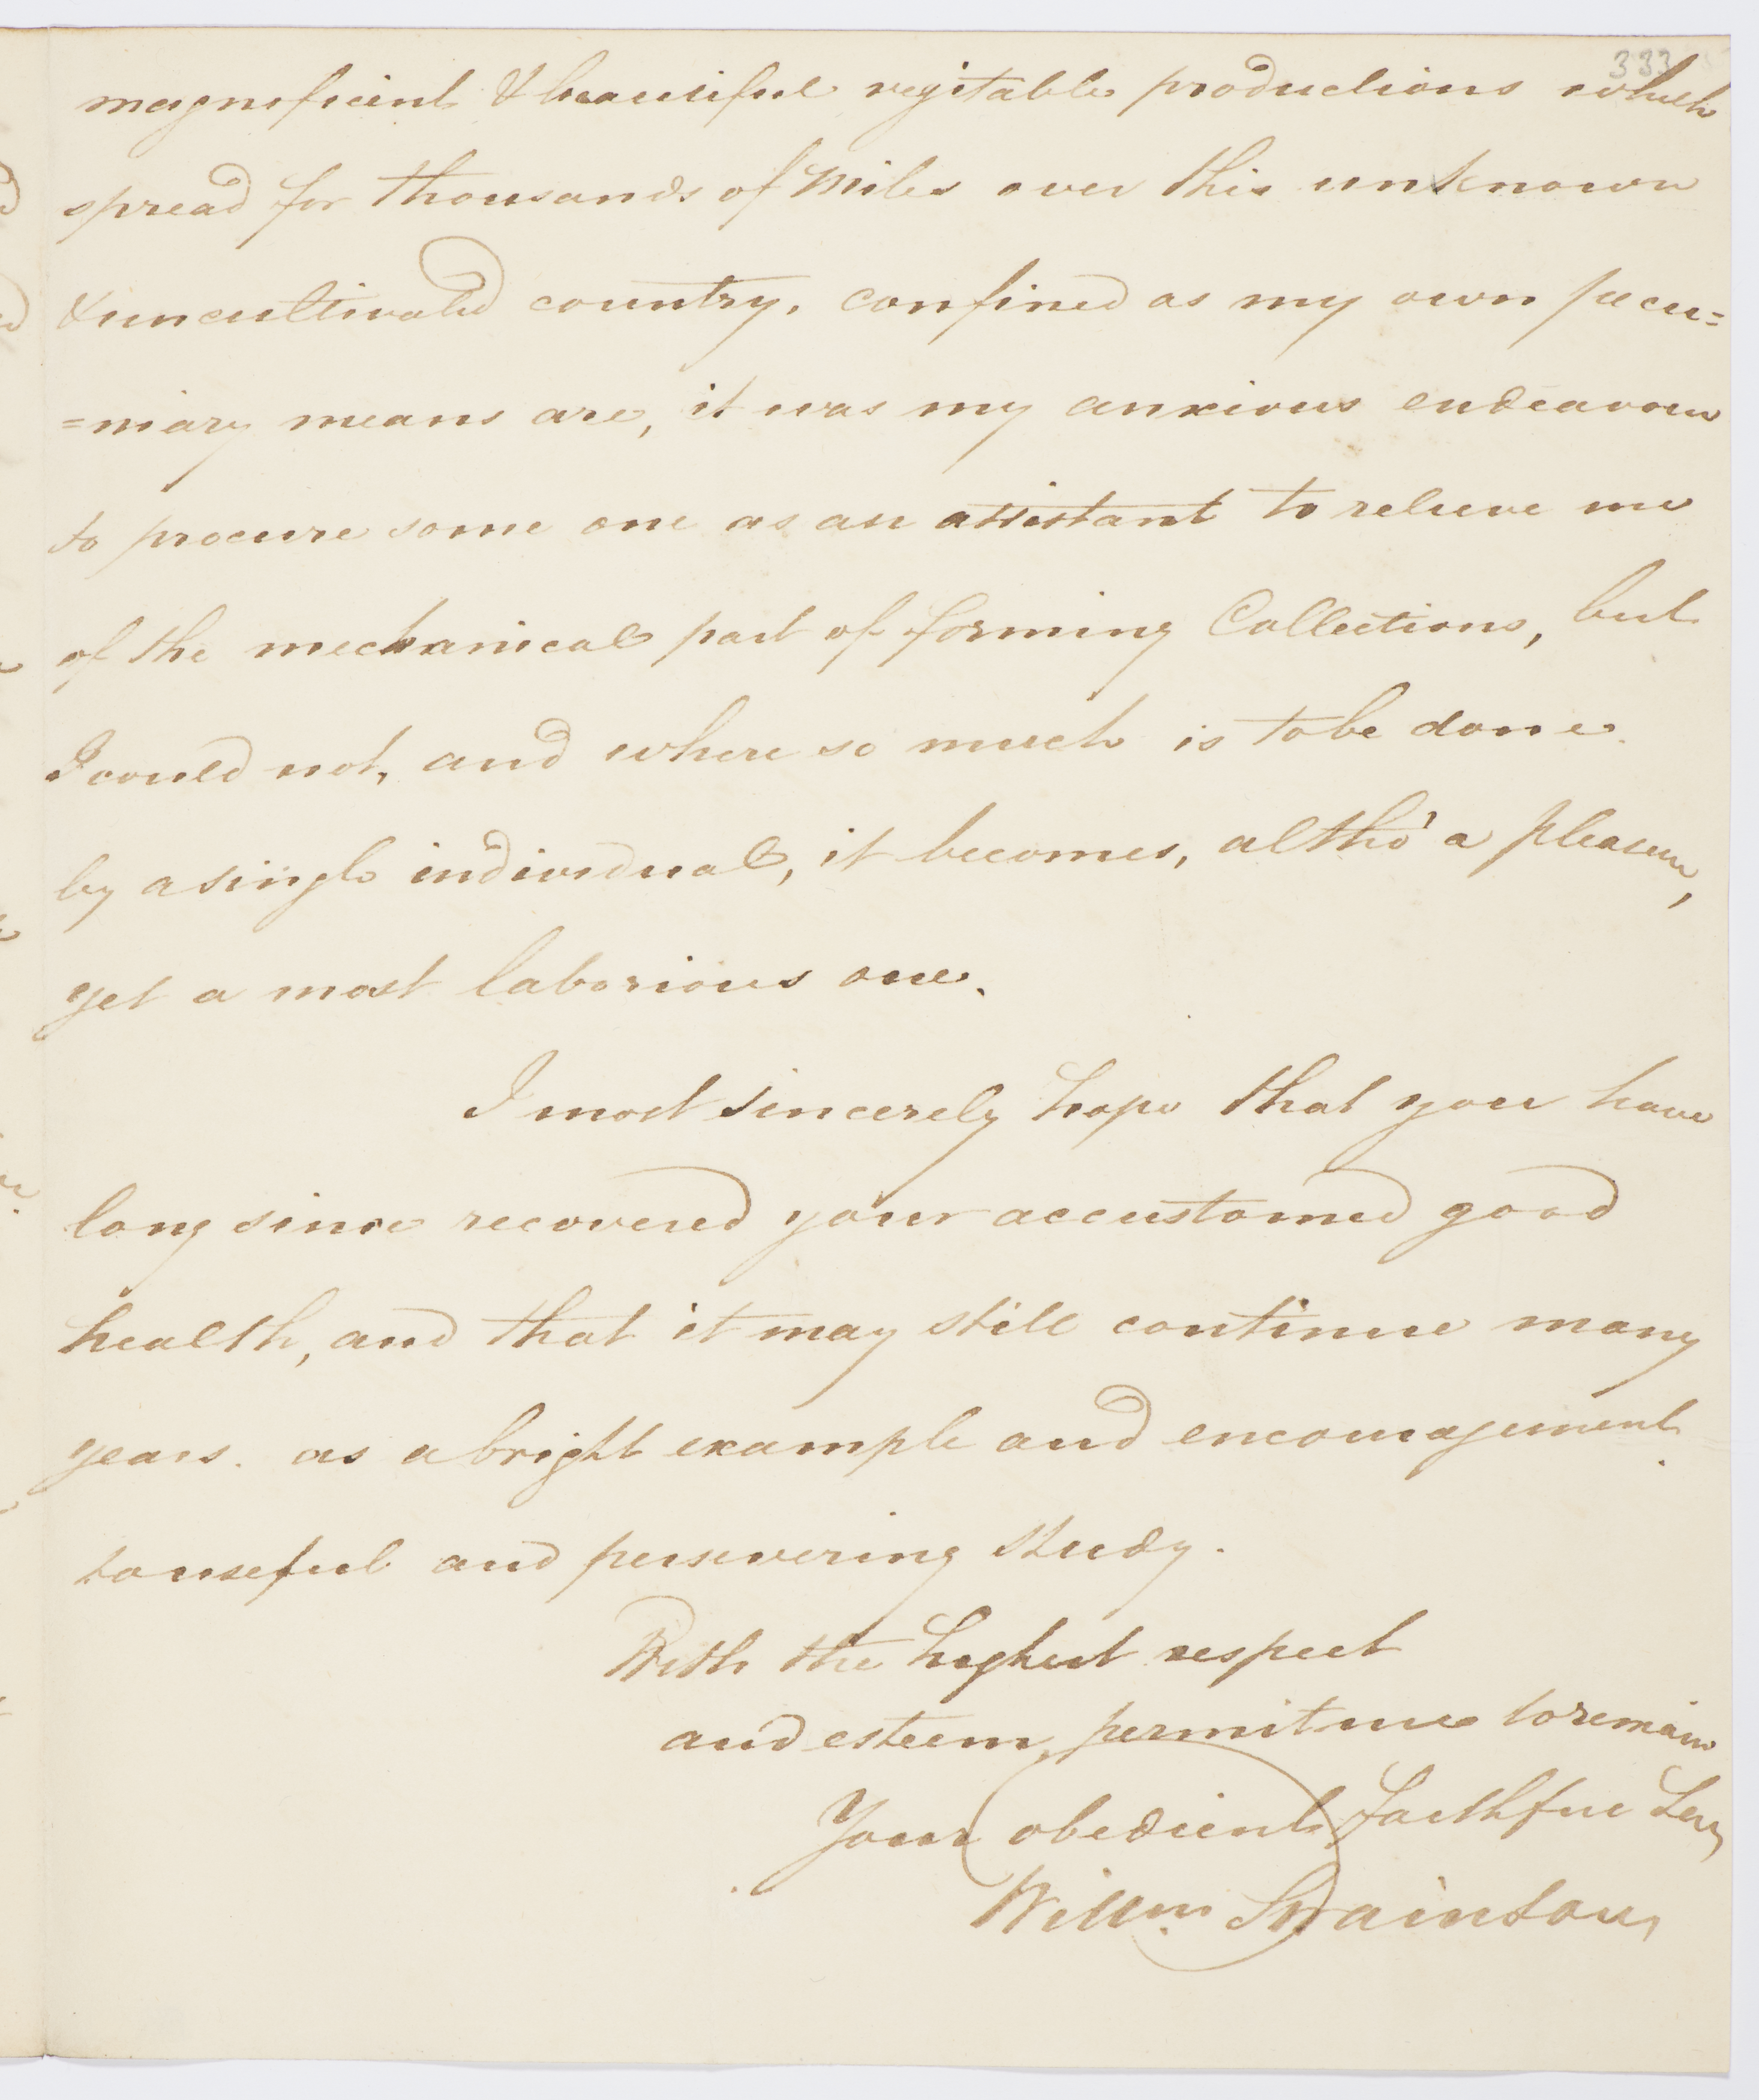 333
magnificent & beautiful vegitable productions which
spread for thousands of Miles over this unknown
& uncultivated country. confined as my own pecu=
=niary means are, it was my anxious endeavour
to procure some one as an assistant to relieve me
of the mechanical part of forming Collections, but
I could not, and where so much is to be done
by a single individual, it becomes, altho' a pleasure,
yet a most laborious one.
I most sincerely hope that you have
long since recovered your accustomed good
health, and that it may still continue many
years. as a bright example and encouragement
to useful and persevering study.
With the highest respect
and esteem, permit me to remain
Your obedient faithful Ser
Willm. Swainson